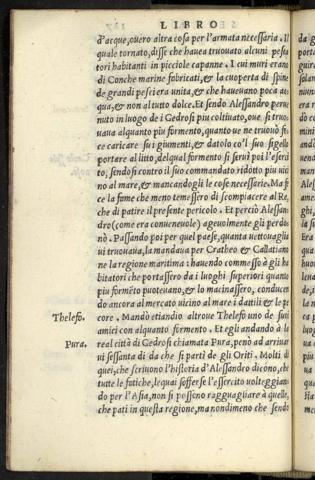 LIBRO
d'acque, ouero altra cosa per l'armata necessaria. Il
quale tornato, disse che hauea truouato alcuni pesca
tori habitanti in picciole capanne. I cui muri erano
di Conche marine fabricati, & la cuoperta di spine
de grandi pesci era unita, & che haueuano poca ac
qua, & non al tutto dolce. Et sendo Alessandro perue
nuto in luogo de i Gedrosi piu coltiuato, oue si truo
uaua alquanto piu formento, quanto ue ne truouò fe
ce caricare su i giumenti, & datolo co'l suo sigello
portare al litto, del qual formento si seruì poi l'eserci
to, sendosi contro il suo commandato ridotto piu vici
no al mare, & mancandogli le cose necessarie. Ma fe
ce la fame che meno temessero di scompiacere al Re,
che di patire il presente pericolo. Et perciò Alessan
dro (come era conueneuole) ageuolmente gli perdo
nò. Passando poi per quel paese, quanta uettouaglia
ui truouaua, la mandaua per Cratheo & Callatiano
ne la regione maritima: hauendo commesso à gli ha
bitatori che portassero da i luoghi superiori quanto
piu formẽto poteuano, & lo macinassero, conducen
do ancora al mercato uicino al mare i dattili & le pe
Thelefo.
core. Mandò etiandio altroue Thelefo uno de suoi
amici con alquanto formento. Et egli andando à la
Pura.
real città di Gedrosi chiamata Pura, penò ad arriuar
ui sessanta dì da che si partì de gli Oriti. Molti di
quei, che scriuono l'historia d'Alessandro dicono, che
tutte le fatiche, le quai sofferse l'essercito uolteggian
do per l'Asia, non si possono ragguagliare à quelle,
che patì in questa regione, ma nondimeno che sendo